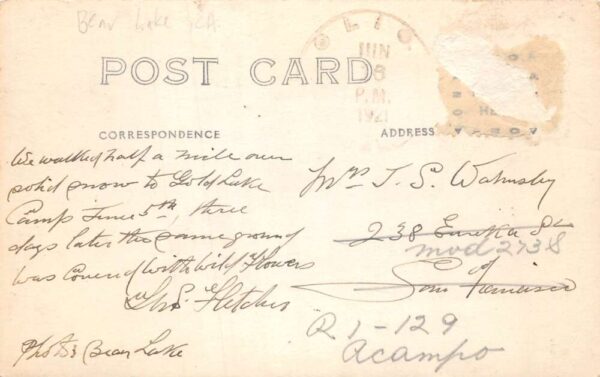 Bear Lake CA.
CLIO
JUN
8
P.M.
1921
POST CARD
CORRESPONDENCE
ADDRESS
We walked half a mile over
solid snow to Gold Lake
Camp June 5th, three
days later the same ground
was covered with wild flowers
Fletcher
Photo: Bear Lake
Mrs J. S. Walmsley
238 Eureka St
mvd 2738
San Francisco
R 1-129
Acampo